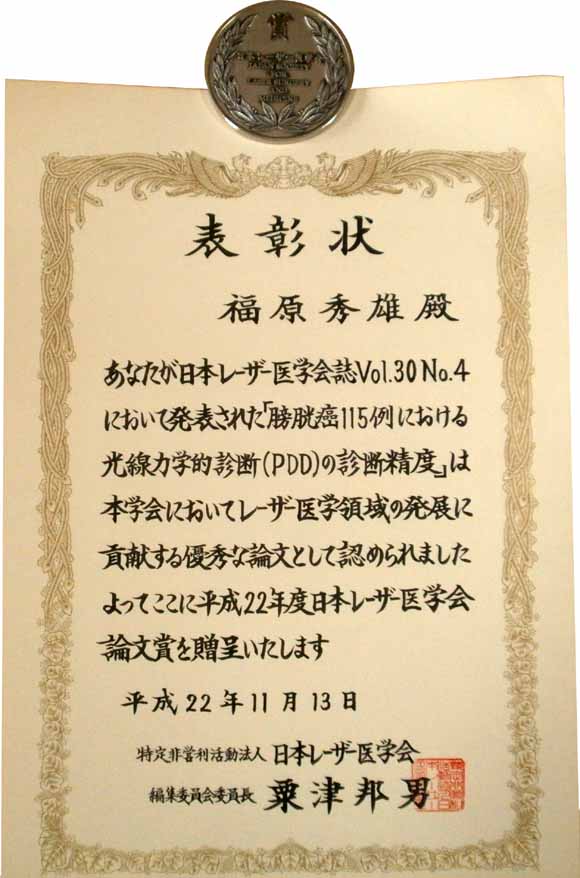 賞
表彰状
福原秀雄殿
あなたが日本レーザー医学会誌Vol.30 No.4
において発表された「膀胱癌115例における
光線力学的診断(PDD)の診断精度」は
本学会においてレーザー医学領域の発展に
貢献する優秀な論文として認められました
よってここに平成22年度日本レーザー医学会
論文賞を贈呈いたします
平成22年11月13日
特定非営利活動法人 日本レーザー医学会
編集委員会委員長 粟津邦男